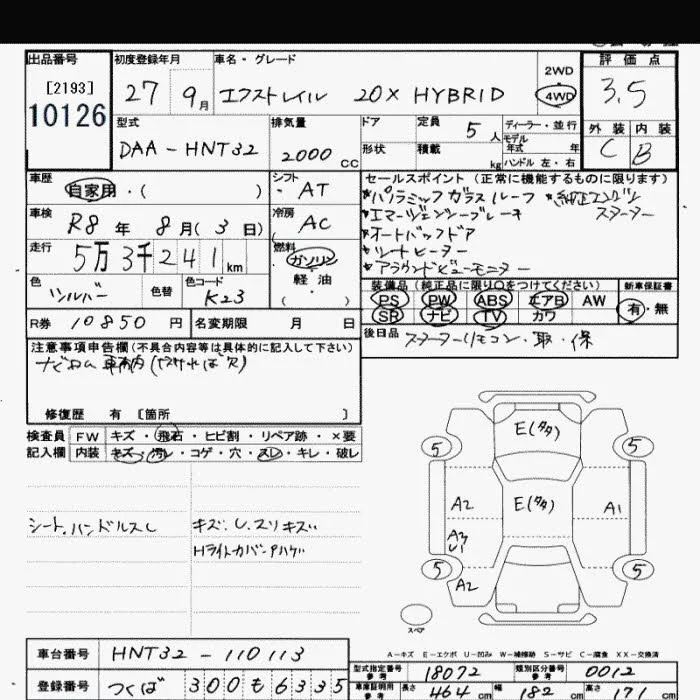 出品番号 初度登録年月 車名・グレード 2WD 4WD 評価点
[2193]
10126 27 9月 エクストレイル 20X HYBRID 3.5
型式 排気量 ドア 定員 5人 ディーラー・並行 外装 内装
DAA-HNT32 2000CC 形状 積載 kg モデル年式 年 ハンドル 左・右 C B
車歴 自家用・( ) シフト AT セールスポイント(正常に機能するものに限ります)
*パノラミックガラスルーフ *純正エンジンスターター
車検 R8年 8月(3日) 冷房 AC *エマージェンシーブレーキ
*オートバックドア
走行 5万3千241km 燃料 ガソリン 軽油 ( ) *シートヒーター
*アラウンドビューモニター
色 シルバー 色替 色コード K23 装備品(純正品に限り○をつけてください) 新車保証書
PS PW ABS エアB AW 有・無
SR ナビ TV カワ
R券 10850円 名変期限 月 日 後日品 スターターリモコン・取・保
注意事項申告欄(不具合内容等は具体的に記入して下さい)
修復歴 有 [箇所 ]
検査員 FW キズ・飛石・ヒビ割・リペア跡・×要
記入欄 内装 キズ・汚レ・コゲ・穴・スレ・キレ・破レ
シート.ハンドルスレ キズ.U.スリキズ
Hライトカバーハゲ
E(タタ)
5 5
A2 E(タタ) A1
A3
U1
5 5
A2
スペア
A-キズ E-エクボ U-凹み W-補修跡 S-サビ C-腐食 XX-交換済
車台番号 HNT32-110113 型式指定番号 参考 18072 類別区分番号 参考 0012
登録番号 つくば 300 も 6335 車庫証明用 参考 長さ 464cm 幅 182cm 高さ 171cm